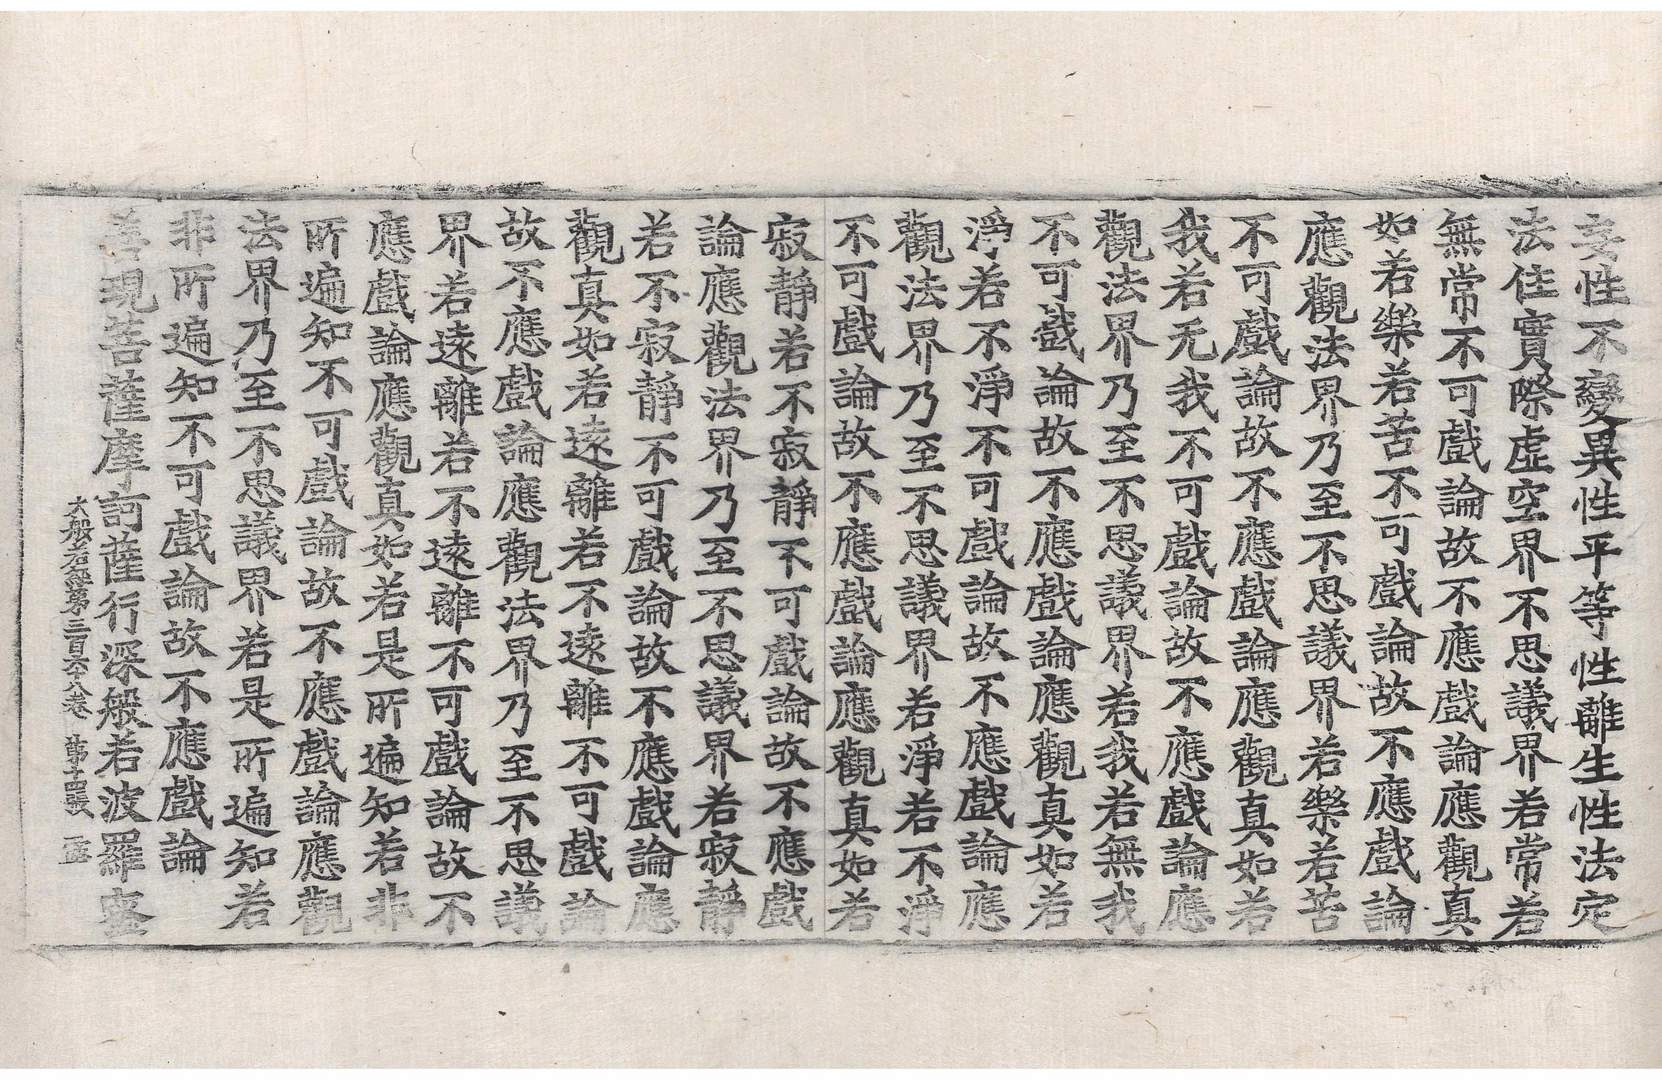 妄性不變異性平等性離生性法定
法住實際虛空界不思議界若常若
無常不可戲論故不應戲論應觀真
如若樂若苦不可戲論故不應戲論
應觀法界乃至不思議界若樂若苦
不可戲論故不應戲論應觀真如若
我若无我不可戲論故不應戲論應
觀法界乃至不思議界若我若無我
不可戲論故不應戲論應觀真如若
淨若不淨不可戲論故不應戲論應
觀法界乃至不思議界若淨若不淨
不可戲論故不應戲論應觀真如若
寂靜若不寂靜不可戲論故不應戲
論應觀法界乃至不思議界若寂靜
若不寂靜不可戲論故不應戲論應
觀真如若遠離若不遠離不可戲論
故不應戲論應觀法界乃至不思議
界若遠離若不遠離不可戲論故不
應戲論應觀真如若是所遍知若非
所遍知不可戲論故不應戲論應觀
法界乃至不思議界若是所遍知若
非所遍知不可戲論故不應戲論
善現菩薩摩訶薩行深般若波羅蜜
大般若經第三百六十八卷 第十四張